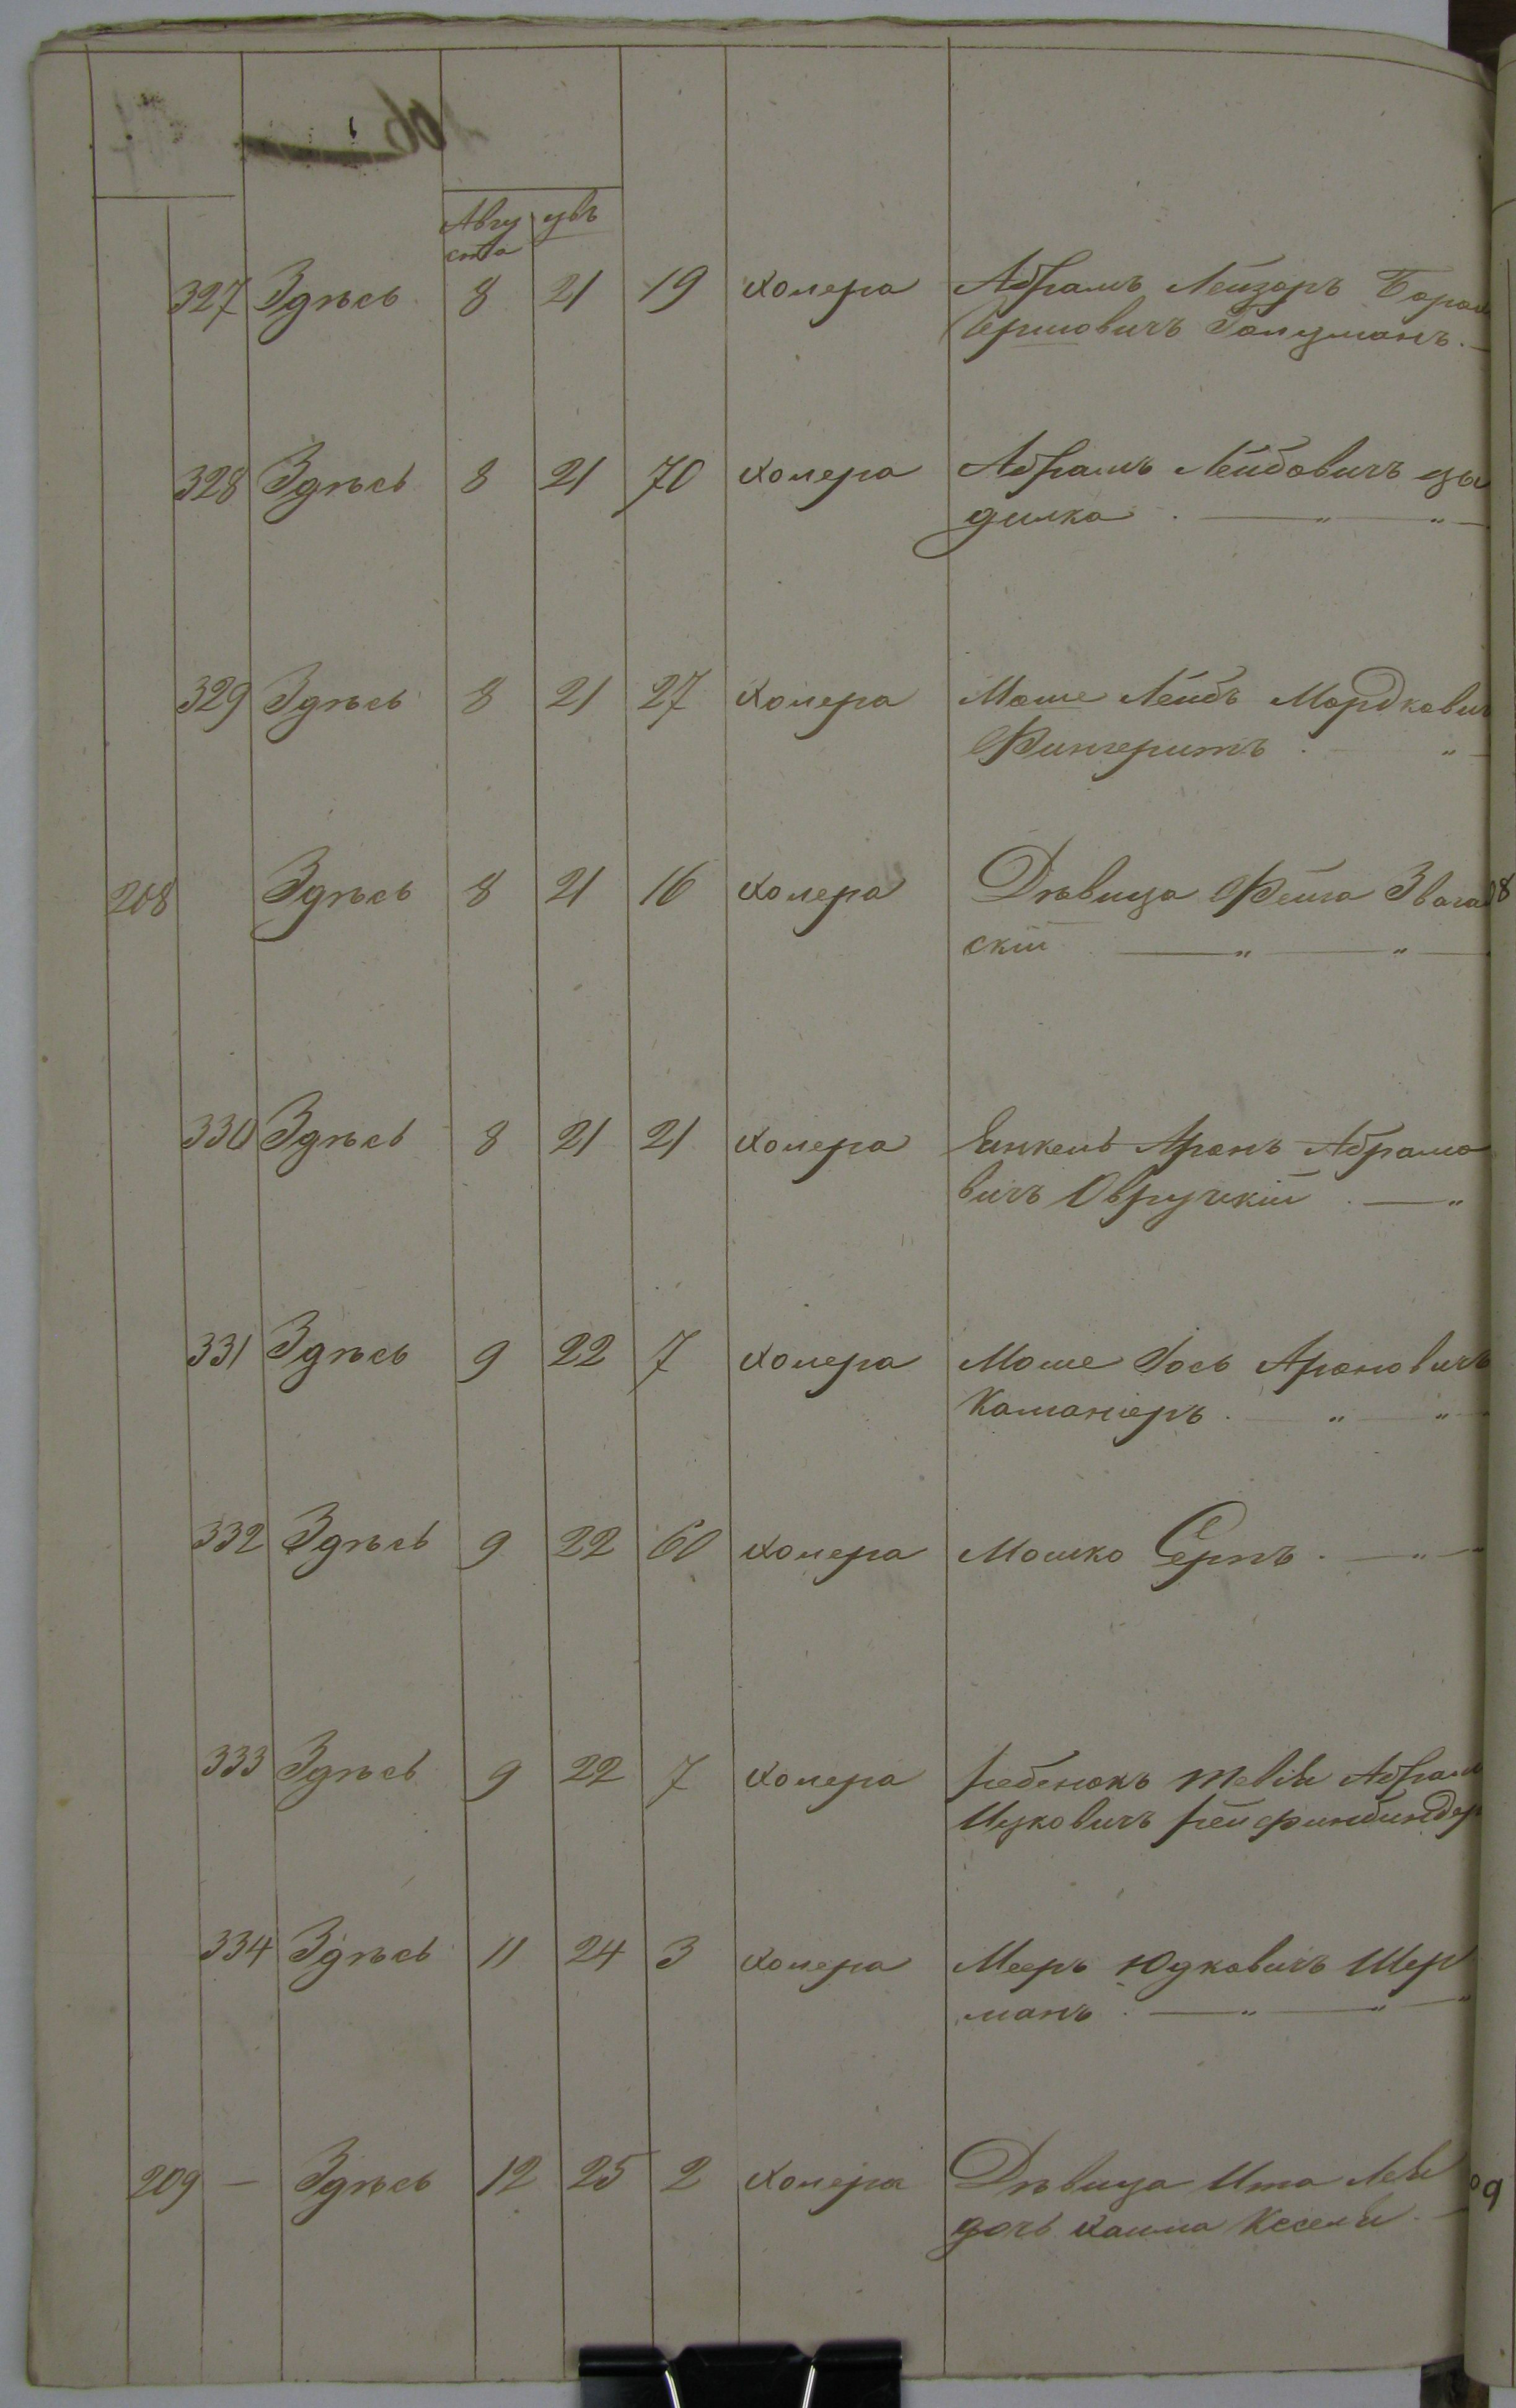 Авгу увъ
ста
327 Здѣсь 8 21 19 холера Абрамъ Лейзоръ Борох
Гершовичъ Голцманъ. —
328 Здѣсь 8 21 70 холера Абрамъ Лейбовичъ цы
дилка . — " — " —
329 Здѣсь 8 21 27 холера Моше Лейбъ Мордкович
Фингеритъ . — " —
208 Здѣсь 8 21 16 холера Дѣвица Фейга 8
скій — " — " —
330 Здѣсь 8 21 21 холера Янкель Аронъ Абрамо
вичъ Овручкій . — "
331 Здѣсь 9 22 7 холера Моше Іось Ароновичъ
. — " — " —
332 Здѣсь 9 22 60 холера Мошко Серпъ . — " —
333 Здѣсь 9 22 7 холера ребенокъ Абрам
Ицковичъ
334 Здѣсь 11 24 3 холера Мееръ Юдковичъ Шер
манъ . — " — " — "
209 — Здѣсь 12 25 2 холера Дѣвица Ита Леи 09
дочь Хаима Кесели —